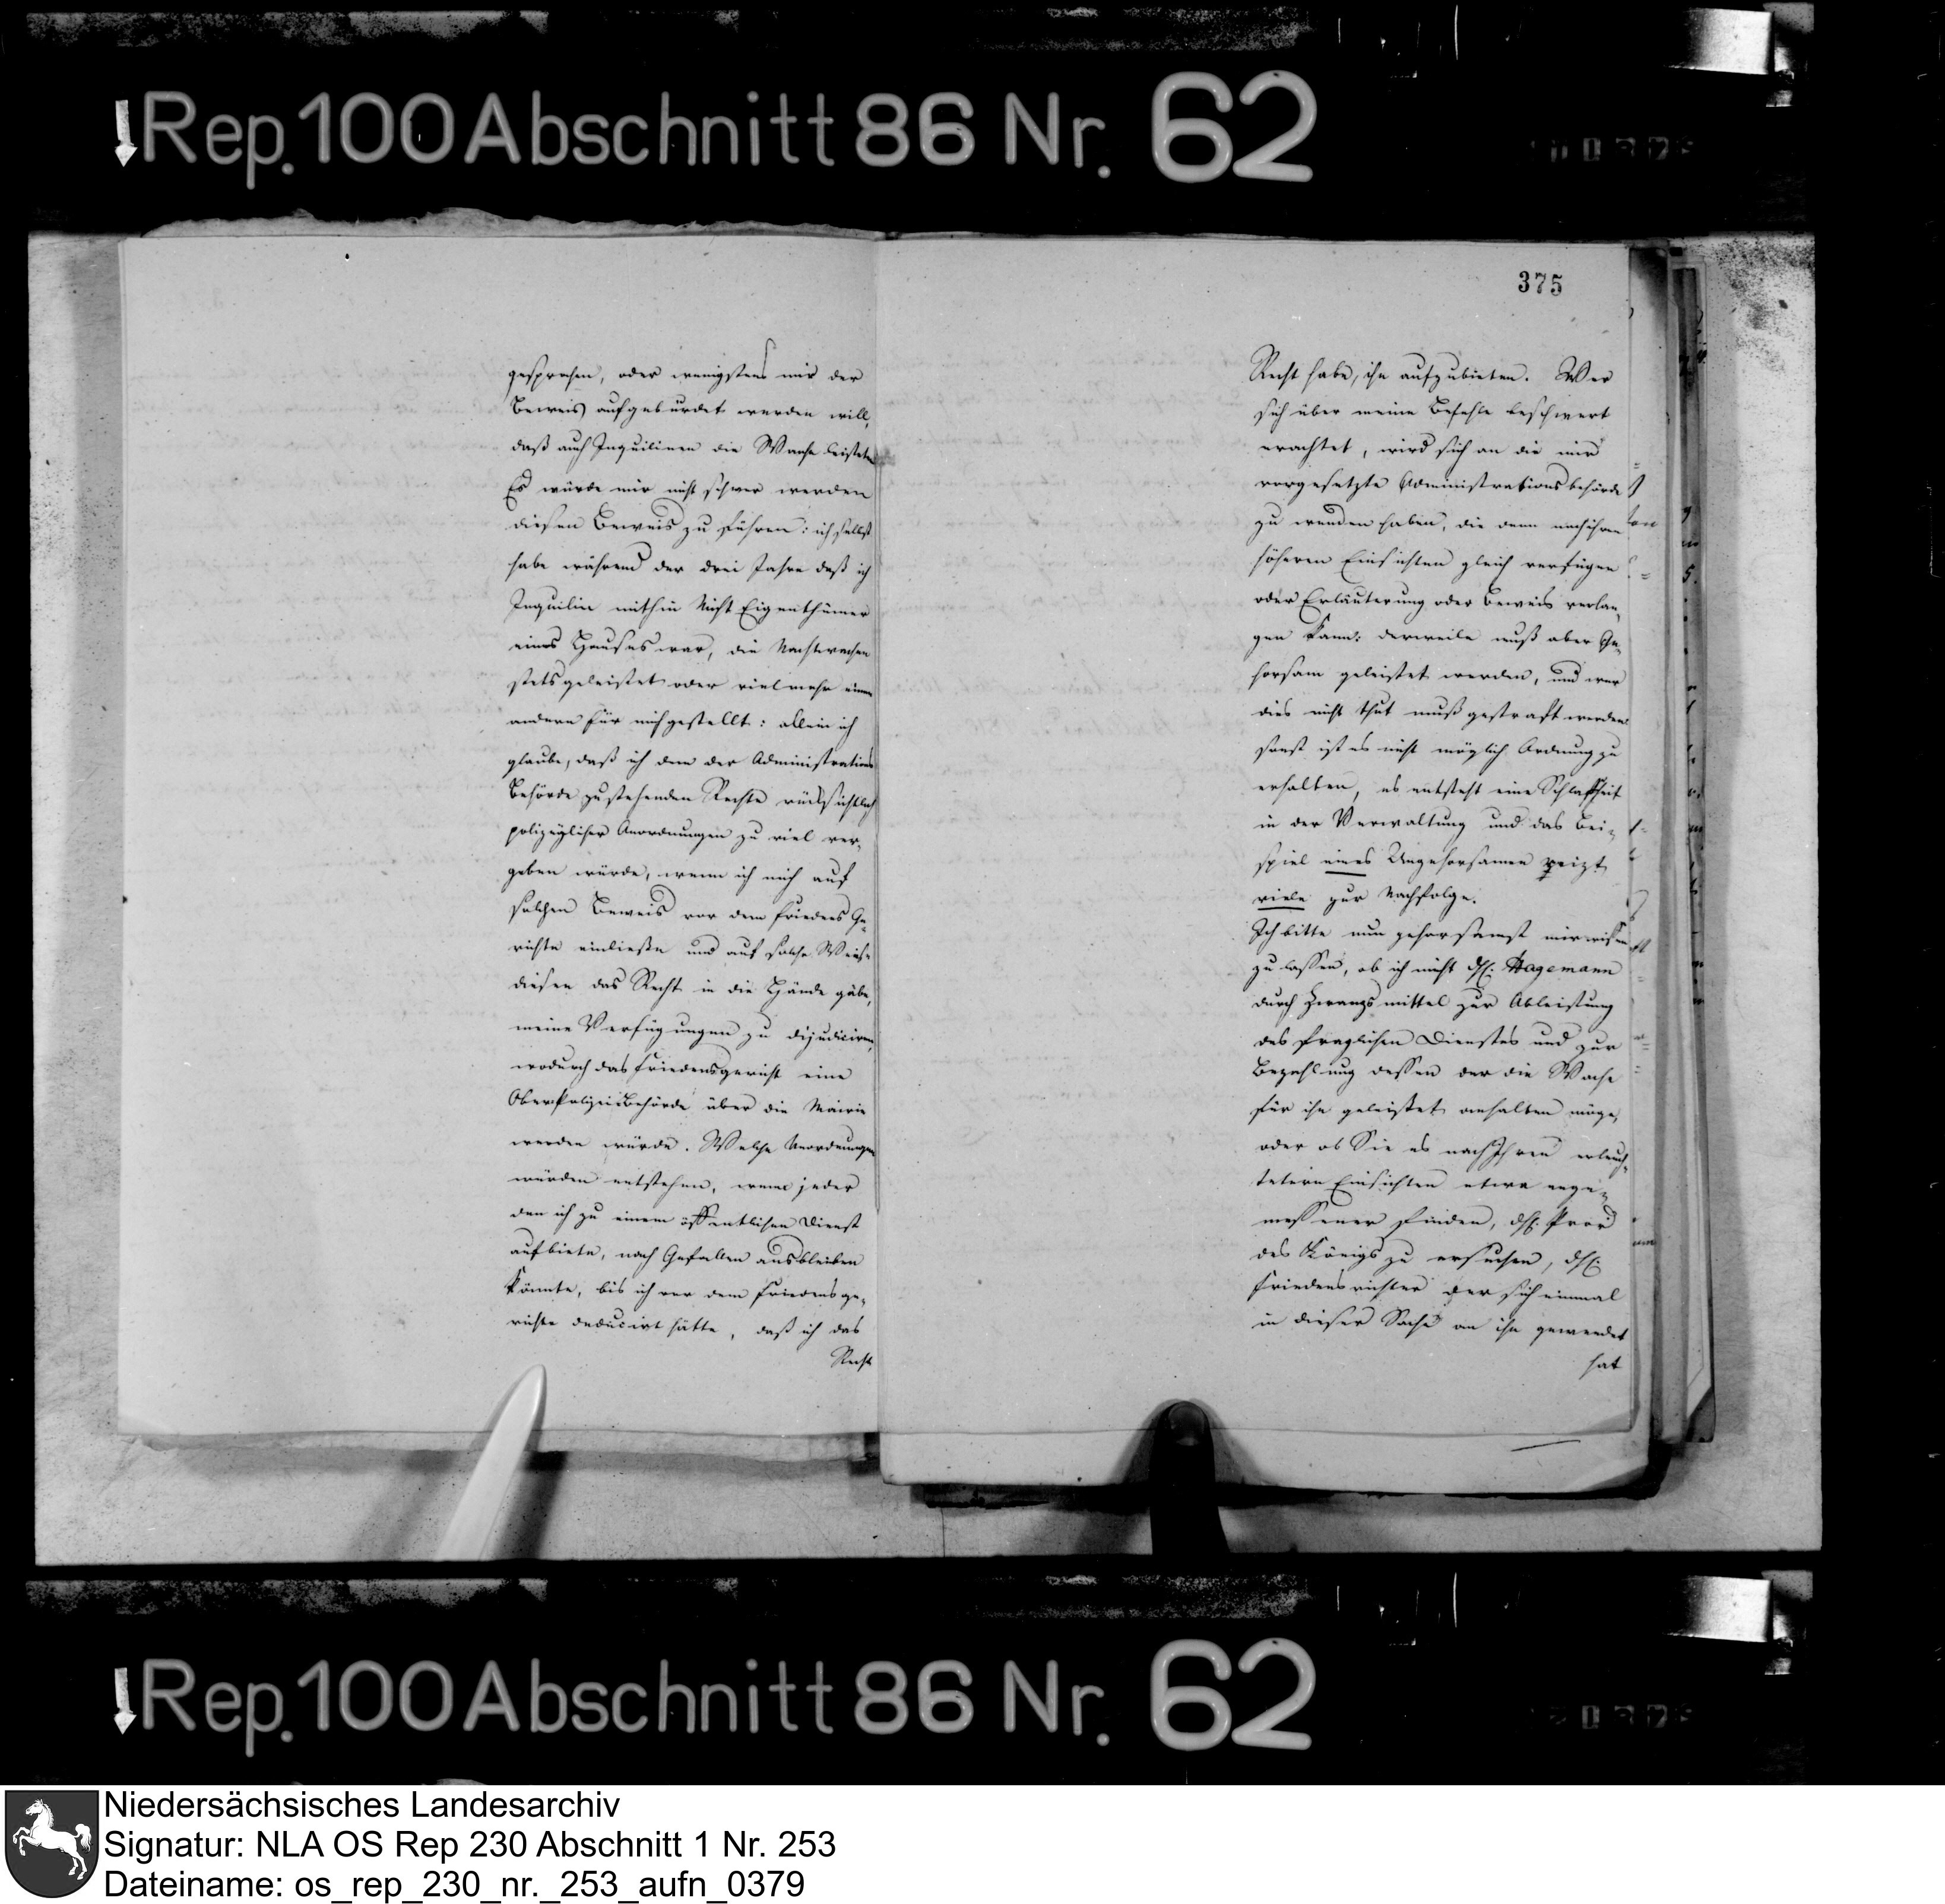 Rep. 100 Abschnitt 86 Nr. 62
375
gesprochen, oder wenigstens mir der
Beweis aufgebürdet werden will,
daß auch Inquilinen die Wache leisteten
Es würde mir nicht schwer werden
diesen Beweis zu führen: ich selbst
habe während der drei Jahre daß ich
Inquilin mithin Nicht Eigenthümer
eines Hauses war, die Nachtwachen
stets geleistet oder vielmehr einen
andern für mich gestellt: allein ich
glaube, daß ich dem der Administrations
Behörde zustehenden Rechte rücksichtlich
polizeylicher Anordnungen zu viel ver-
geben würde, wenn ich mich auf
solchen Beweis vor dem Friedens Ge-
richte einließe und auf solche Weise
diesem das Recht in die Hände gäbe,
meine Verfügungen zu dijudiciren,
wodurch das Friedensgericht eine
Oberpolizeibehörde über die Mairie
werden würde. Welche Unordnungen
würden entstehen, wenn jeder
den ich zu einem öffentlichen Dienst
aufbiete, nach Gefallen ausbleiben
könnte, bis ich vor dem Friedensge-
richte deducirt hätte, daß ich das
Recht
Recht habe, ihn aufzubieten. Wer
sich über meine Befehle beschwert
erachtet, wird sich an die mir
vorgesetzte Administrationsbehörde
zu wenden haben, die dann nach ihren
höheren Einsichten gleich verfügen
oder Erläuterung oder Beweis verlan-
gen kann: derweile muß aber Ge-
horsam geleistet werden, und wer
dies nicht thut muß gestraft werden
sonst ist es nicht möglich Ordnung zu
erhalten, es entsteht eine Schlaffheit
in der Verwaltung und das Bei-
spiel eines Ungehorsamen reizt
viele zur Nachfolge.
Ich bitte nun gehorsamst mir wissen
zu lassen, ob ich nicht den Hagemann
durch Zwangsmittel zur Ableistung
des fraglichen Dienstes und zur
Bezahlung dessen der die Wache
für ihn geleistet anhalten möge,
oder ob Sie es nach Ihren erleuch-
tetern Einsichten etwa ange-
messener finden, Proc
des Königs zu ersuchen,
Friedensrichter der sich einmal
in dieser Sache an ihn gewendet
hat
Rep. 100 Abschnitt 86 Nr. 62
Niedersächsisches Landesarchiv
Signatur: NLA OS Rep 230 Abschnitt 1 Nr. 253
Dateiname: os_rep_230_nr._253_aufn_0379